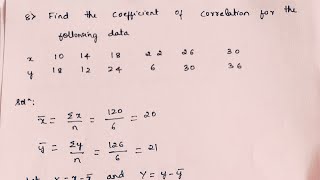 8> Find the coefficient of correlation for the
following data
x 10 14 18 22 26 30
y 18 12 24 6 30 36
Solⁿ:
x̄ = Σx/n = 120/6 = 20
ȳ = Σy/n = 126/6 = 21
Let X = x-x̄ and Y = y-ȳ